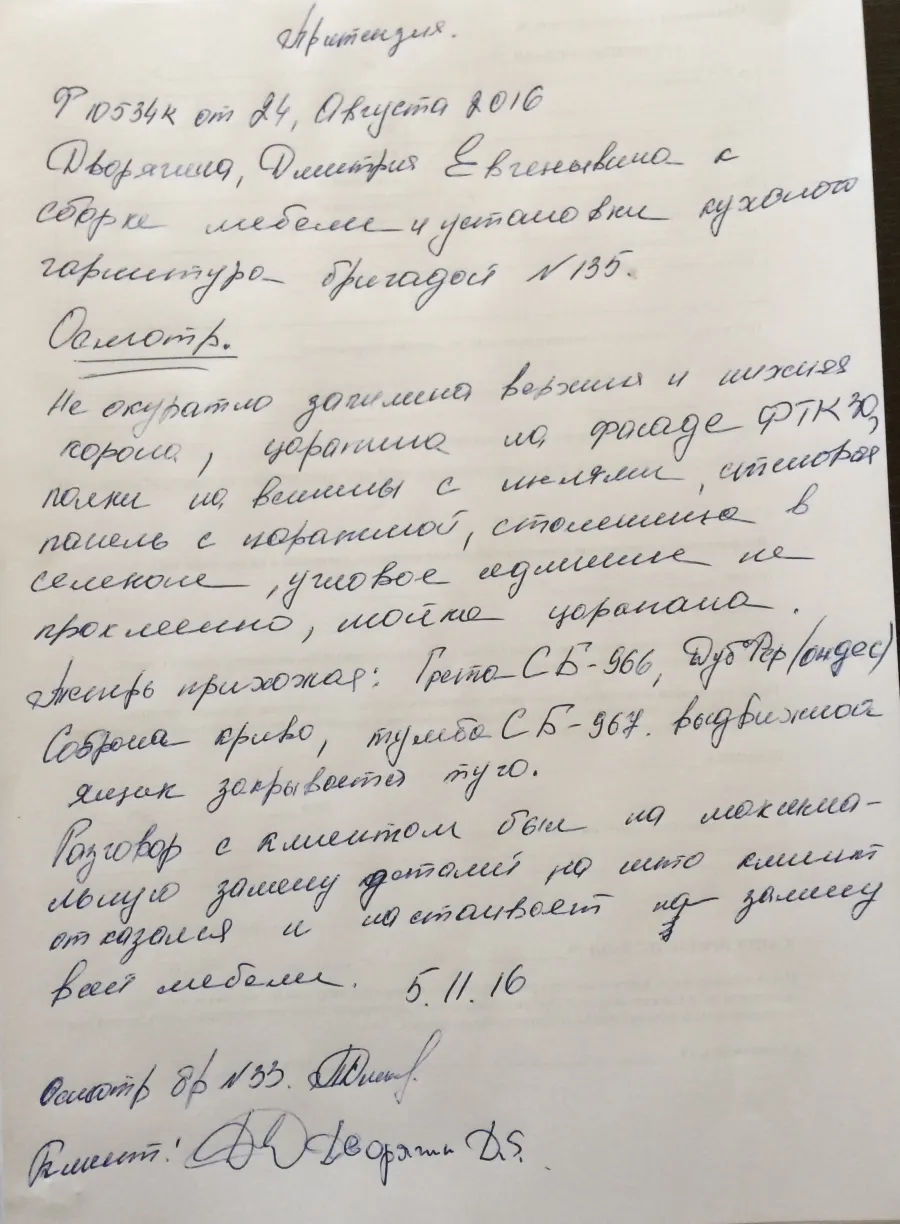 Притензия.
Р 10534к от 24, Августа 2016
Дворягина, Дмитрия Евгеньвича к
сборке мебели и установки кухоного
гарнитура бригадой N 135.
Осмотр.
Не окуратно запилина верхния и нижняя
корона, царапина на фасаде ФТК 30,
полки на винты с
панель с царапиной, столешница в
, угловое не
проклеинно, мойка царапана.
Тжерь прихожая: Грета СБ-966, Дуб Фер/ондес)
Собрана криво, тумба СБ-967. выдвижной
ящик закрывается туго.
Разговор с клиентом был на макcима-
льную замену деталий на што клиинт
отказался и настаивоет на замину
всей мебели. 5.11.16
Осмотр бр N33.
Клиент: Дворягин Д.Е.